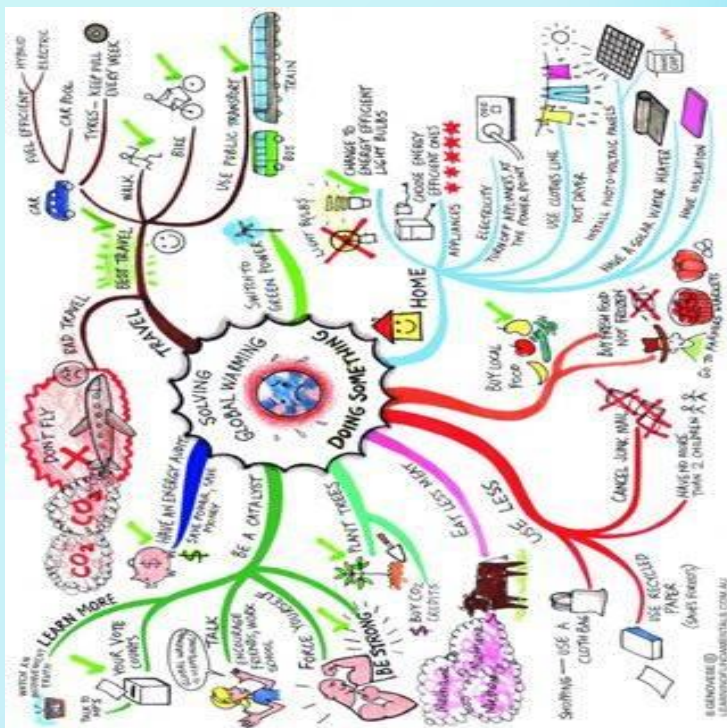 SOLVING
GLOBAL WARMING
DOING SOMETHING
TRAVEL
BAD TRAVEL
DON'T FLY
CO₂ CO₂
BEST TRAVEL
CAR
FUEL EFFICIENT
HYBRID
ELECTRIC
CAR POOL
TYRES — KEEP FULL
EVERY WEEK
WALK
BIKE
USE PUBLIC TRANSPORT
BUS
TRAIN
SWITCH TO
GREEN POWER
HOME
LIGHT BULBS
CHANGE TO
ENERGY EFFICIENT
LIGHT BULBS
APPLIANCES
CHOOSE ENERGY
EFFICIENT ONES
ELECTRICITY
TURN OFF APPLIANCES AT
THE POWER POINT
USE CLOTHES LINE
NOT DRYER
INSTALL PHOTO-VOLTAIC PANELS
HAVE A SOLAR WATER HEATER
HAVE INSULATION
BUY LOCAL
FOOD
BUY FRESH FOOD
NOT FROZEN
GO TO FARMERS MARKETS
USE LESS
CANCEL JUNK MAIL
HAVE NO MORE
THAN 2 CHILDREN
USE RECYCLED
PAPER
(SAVES FORESTS)
SHOPPING — USE A
CLOTH BAG
EAT LESS MEAT
PLANT TREES
$ BUY CO₂
CREDITS
BE A CATALYST
BE STRONG —
FORCE YOURSELF
TALK
ENCOURAGE
FRIENDS, WORK
SCHOOL
GLOBAL WARMING
IS HAPPENING
YOUR VOTE
COUNTS
TALK TO
MP'S
LEARN MORE
WATCH AN
INCONVENIENT
TRUTH
HAVE AN ENERGY AUDIT
SAVE POWER, SAVE
MONEY
$